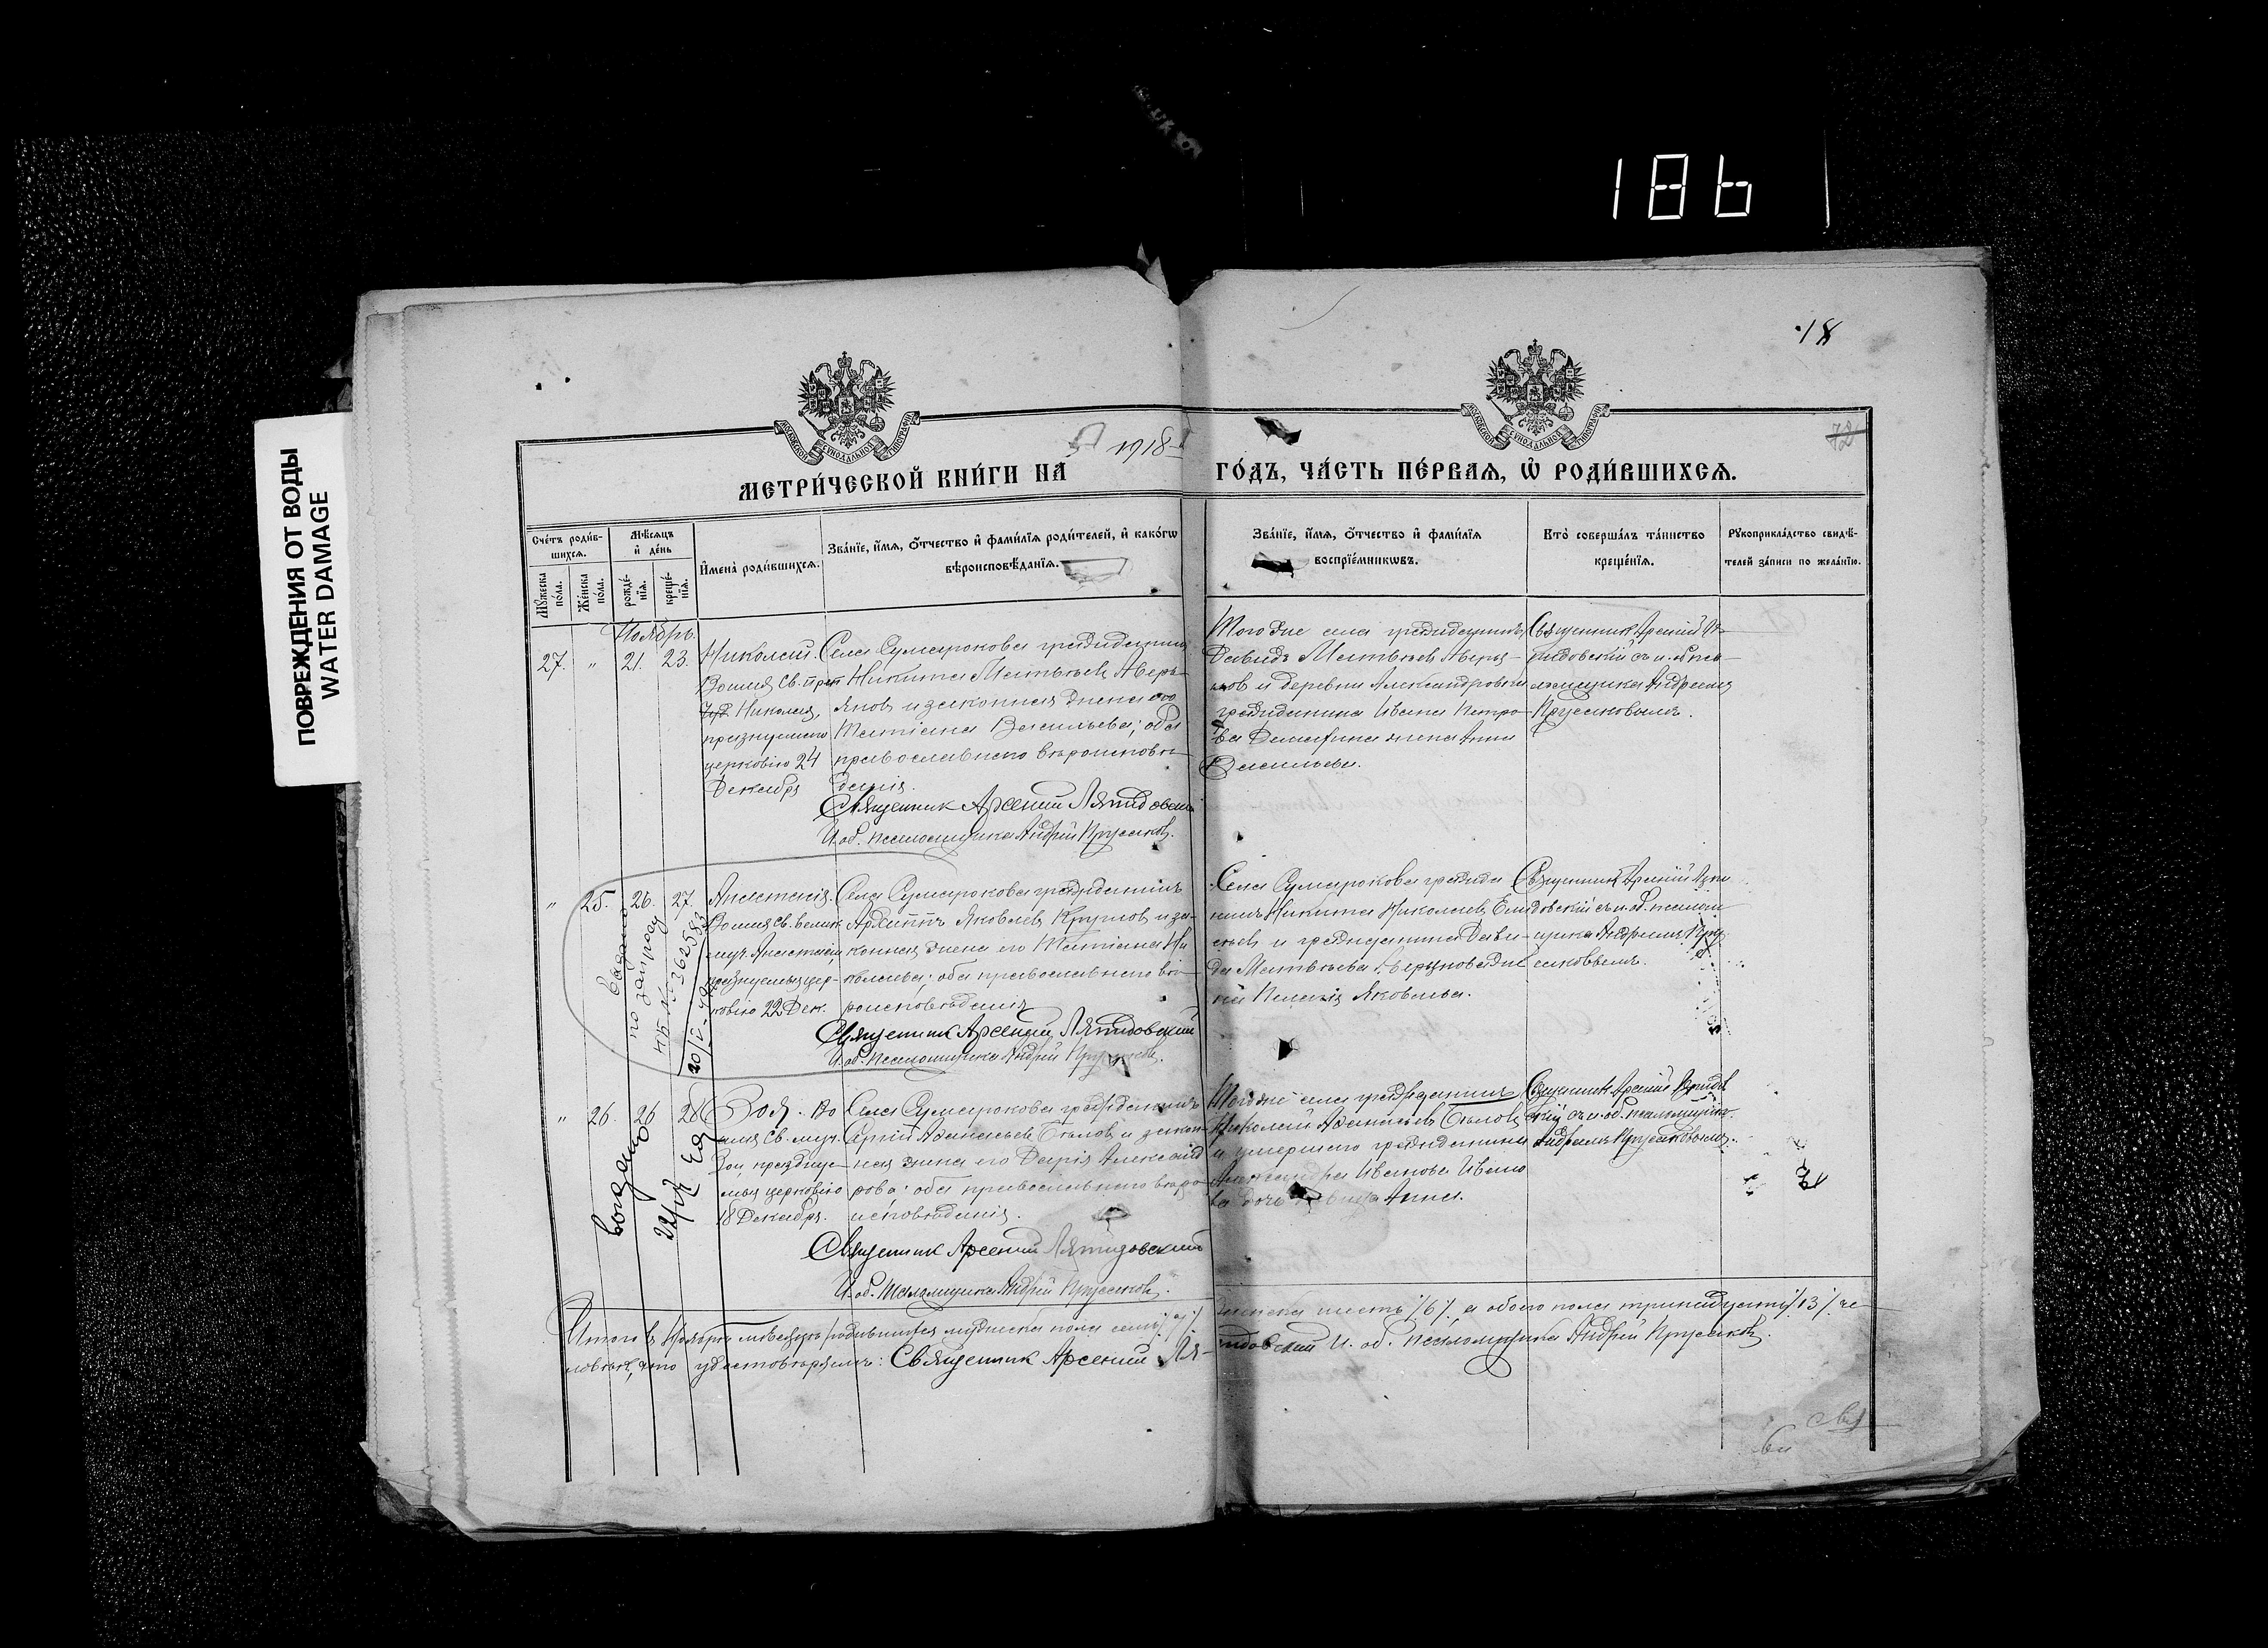 186
ПОВРЕЖДЕНИЯ ОТ ВОДЫ
WATER DAMAGE
18
72
1918
МЕТРИ́ЧЕСКОЙ КНИ́ГИ НА
ГО́ДЪ, ЧА́СТЬ ПЕ́РВАЯ, Ѡ РОДИ́ВШИХСЯ.
Сче́тъ роди́в-
шихся.
Мѣ́сяцъ
и҆ де́нь
Мꙋ́жеска
по́ла.
Же́нска
по́ла.
рожде́-
нїѧ.
креще́-
нїѧ.
И҆мена̀ роди́вшихсѧ.
Зва́нїе, и҆́мѧ, ѻ҆́тчество и҆ фами́лїѧ роди́телей, и҆ како́гѡ
вѣроисповѣ́данїѧ.
Зва́нїе, и҆́мѧ, ѻ҆́тчество и҆ фами́лїѧ
воспрїе́мникѡвъ.
Кто̀ соверша́лъ та́инство
креще́нїѧ.
Рꙋкоприкла́дство свидѣ́-
телей за́писи по жела́нїю.
Ноябрь.
27. " 21. 23.
Николай.
Во имя Св.
Николая,
празнуемаго
церковію 24
Декабря
Села Сумарокова гражданинъ
Никита Матвѣевъ Аверь-
яновъ и законная жена его
Татіана Васильева; оба
православнаго вѣроисповѣ-
данія.
Священник Арсений Ляпидовский
И. об. псаломщика Андрей Прусаковъ.
Того же села гражданинъ
Давидъ Матвѣевъ Аверья-
новъ и деревни Александровки
гражданина Ивана Петро-
ва жена Анна
Васильева.
Священникъ Арсеній Ля-
пидовскій съ и. д. пса-
ломщика Андреемъ
Прусаковымъ.
" 25. 26. 27.
выдано
по запросу
Анастасія.
Во имя Св. велик
муч. Анастасіи
празнуемыя цер-
ковію 22 Дек.
Села Сумарокова гражданинъ
Архиппъ Яковлевъ Кругловъ и за-
конная жена его Татіана Ни
колаева; оба православнаго вѣ-
роисповѣданія
Священник Арсений Ляпидовский
И. об. псаломщика Андрей Прусаковъ.
Села Сумарокова гражда
нинъ Никита Николаевъ Ели
сѣевъ и гражданина Дави-
да Матвѣева Аверьянова
Пелагія Яковлева.
Священникъ Арсеній Ляпи
довскій съ и. об. псалом
щика Андреемъ Пру
саковымъ.
" 26. 26 28
выдано
Зоя. Во
имя Св. муч.
Зои праздну-
емыя церковію
18 Декабря.
Села Сумарокова гражданинъ
Сергій Афанасьевъ Бѣловъ и закон-
ная жена его Дарія Александ
рова; оба православнаго вѣро-
исповѣданія.
Священник Арсений Ляпидовский
И. об. псаломщика Андрей Прусаковъ.
Того же села гражданинъ
Николай Афанасьевъ Бѣловъ
и умершаго гражданина
Александра Иванова Ивано
ва дочь девица Анна.
Священникъ Арсеній Ляпидов
скій съ и. об. псаломщика
Андреемъ Прусаковымъ.
Итого въ Ноябрѣ мѣсяцѣ родившихся мужеска пола семь /7/
женска шесть /6/, а обоего пола тринадцать /13/ че
ловѣкъ, что удостовѣряемъ: Священник Арсений Ля-
пидовский И. об. псаломщика Андрей Прусаковъ.